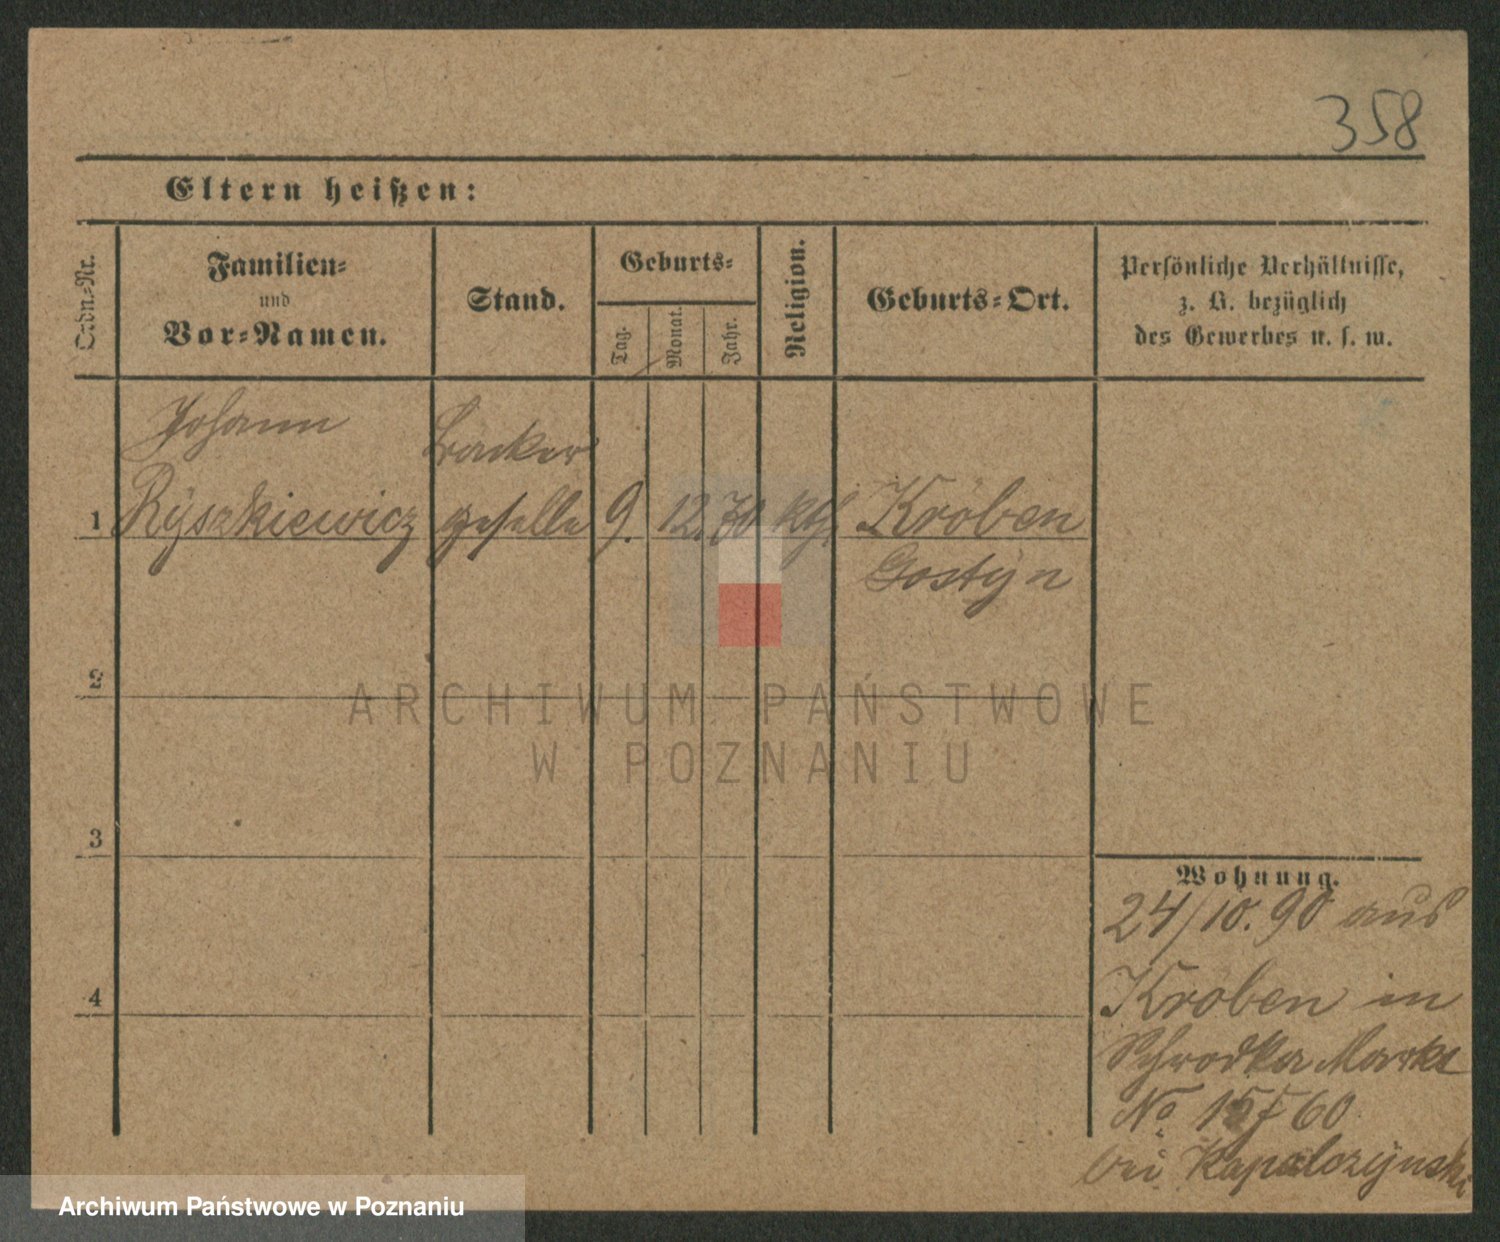 358
Eltern heißen:
Ordn.-Nr.
Familien-
und
Vor-Namen.
Stand.
Geburts-
Tag.
Monat.
Jahr.
Religion.
Geburts-Ort.
Persönliche Verhältnisse,
z. B. bezüglich
des Gewerbes u. s. w.
Johann
Bäcker
1 Ryszkiewicz geselle 9. 12. 70 kth. Kröben
Gostyn
2
3
4
Wohnung.
24/10. 90 aus
Kröben in
Schrodka Markt
No 15/60
bei Kapalczynski
ARCHIWUM PAŃSTWOWE
W POZNANIU
Archiwum Państwowe w Poznaniu